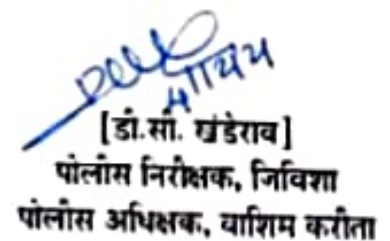 [डी.सी. खंडेराव]
पोलीस निरीक्षक, जिविशा
पोलीस अधिक्षक, वाशिम करीता